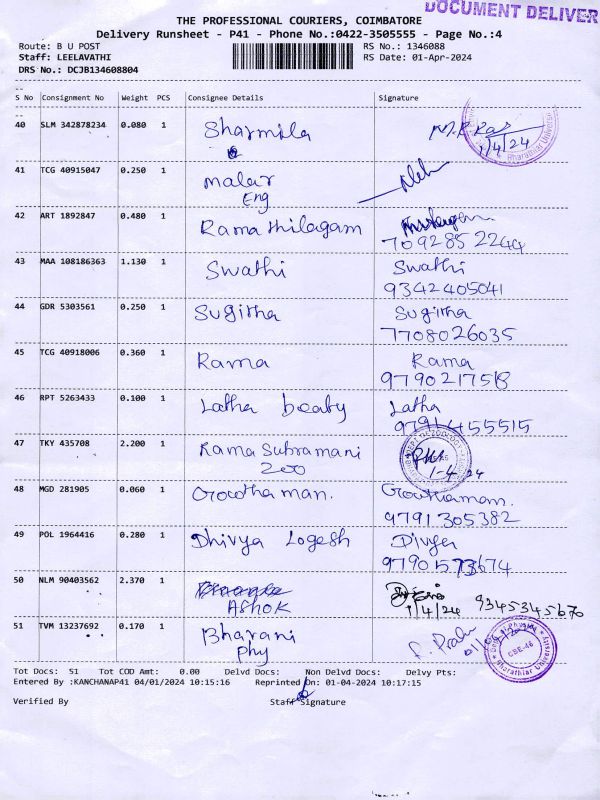 DOCUMENT DELIVER
THE PROFESSIONAL COURIERS, COIMBATORE
Delivery Runsheet - P41 - Phone No.:0422-3505555 - Page No.:4
Route: B U POST RS No.: 1346088
Staff: LEELAVATHI RS Date: 01-Apr-2024
DRS No.: DCJB134608804
S No Consignment No Weight PCS Consignee Details Signature
40 SLM 342878234 0.080 1 Sharmila
1/4/24
Bharathiar
41 TCG 40915047 0.250 1 malar
Eng
42 ART 1892847 0.480 1 Rama thilagam
7092852244
43 MAA 108186363 1.130 1 Swathi Swathi
9342405041
44 GDR 5303561 0.250 1 Sugitha Sugitha
7708026035
45 TCG 40918006 0.360 1 Rama Rama
46 RPT 5263433 0.100 1 Latha Latha
9791455515
47 TKY 435708 2.200 1 Rama Subramani
Zoo 1-4-24
48 MGD 281905 0.060 1 Gowthaman. Gowthaman.
9791305382
49 POL 1964416 0.280 1 Dhivya Logesh Divya
50 NLM 90403562 2.370 1
ASHOK 1/4/24 9345345670
51 TVM 13237692 0.170 1 Bharani
Phy
CBE-46
Bharathiar
Tot Docs: 51 Tot COD Amt: 0.00 Delvd Docs: Non Delvd Docs: Delvy Pts:
Entered By :KANCHANAP41 04/01/2024 10:15:16 Reprinted On: 01-04-2024 10:17:15
Verified By Staff Signature